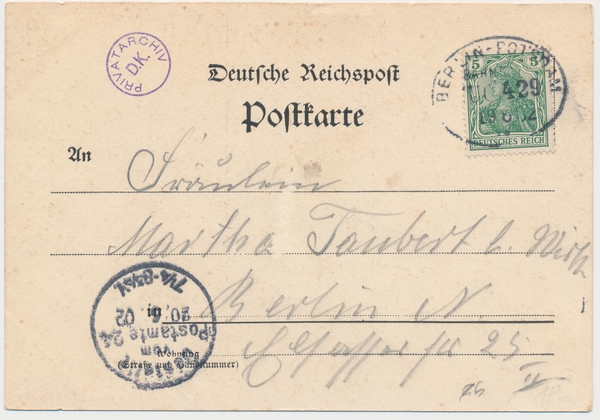 PRIVATARCHIV
D.K.
Deutsche Reichspost
Postkarte
BERLIN-POTSDAM
429
5 5
DEUTSCHES REICH
An
Fräulein
Martha Taubert b. Wirth
in Berlin N.
Elsasser str 25 II
Wohnung
(Straße und Hausnummer)
Bestellt
vom
Postamte 24
20. 6. 02
7¼-8½V.